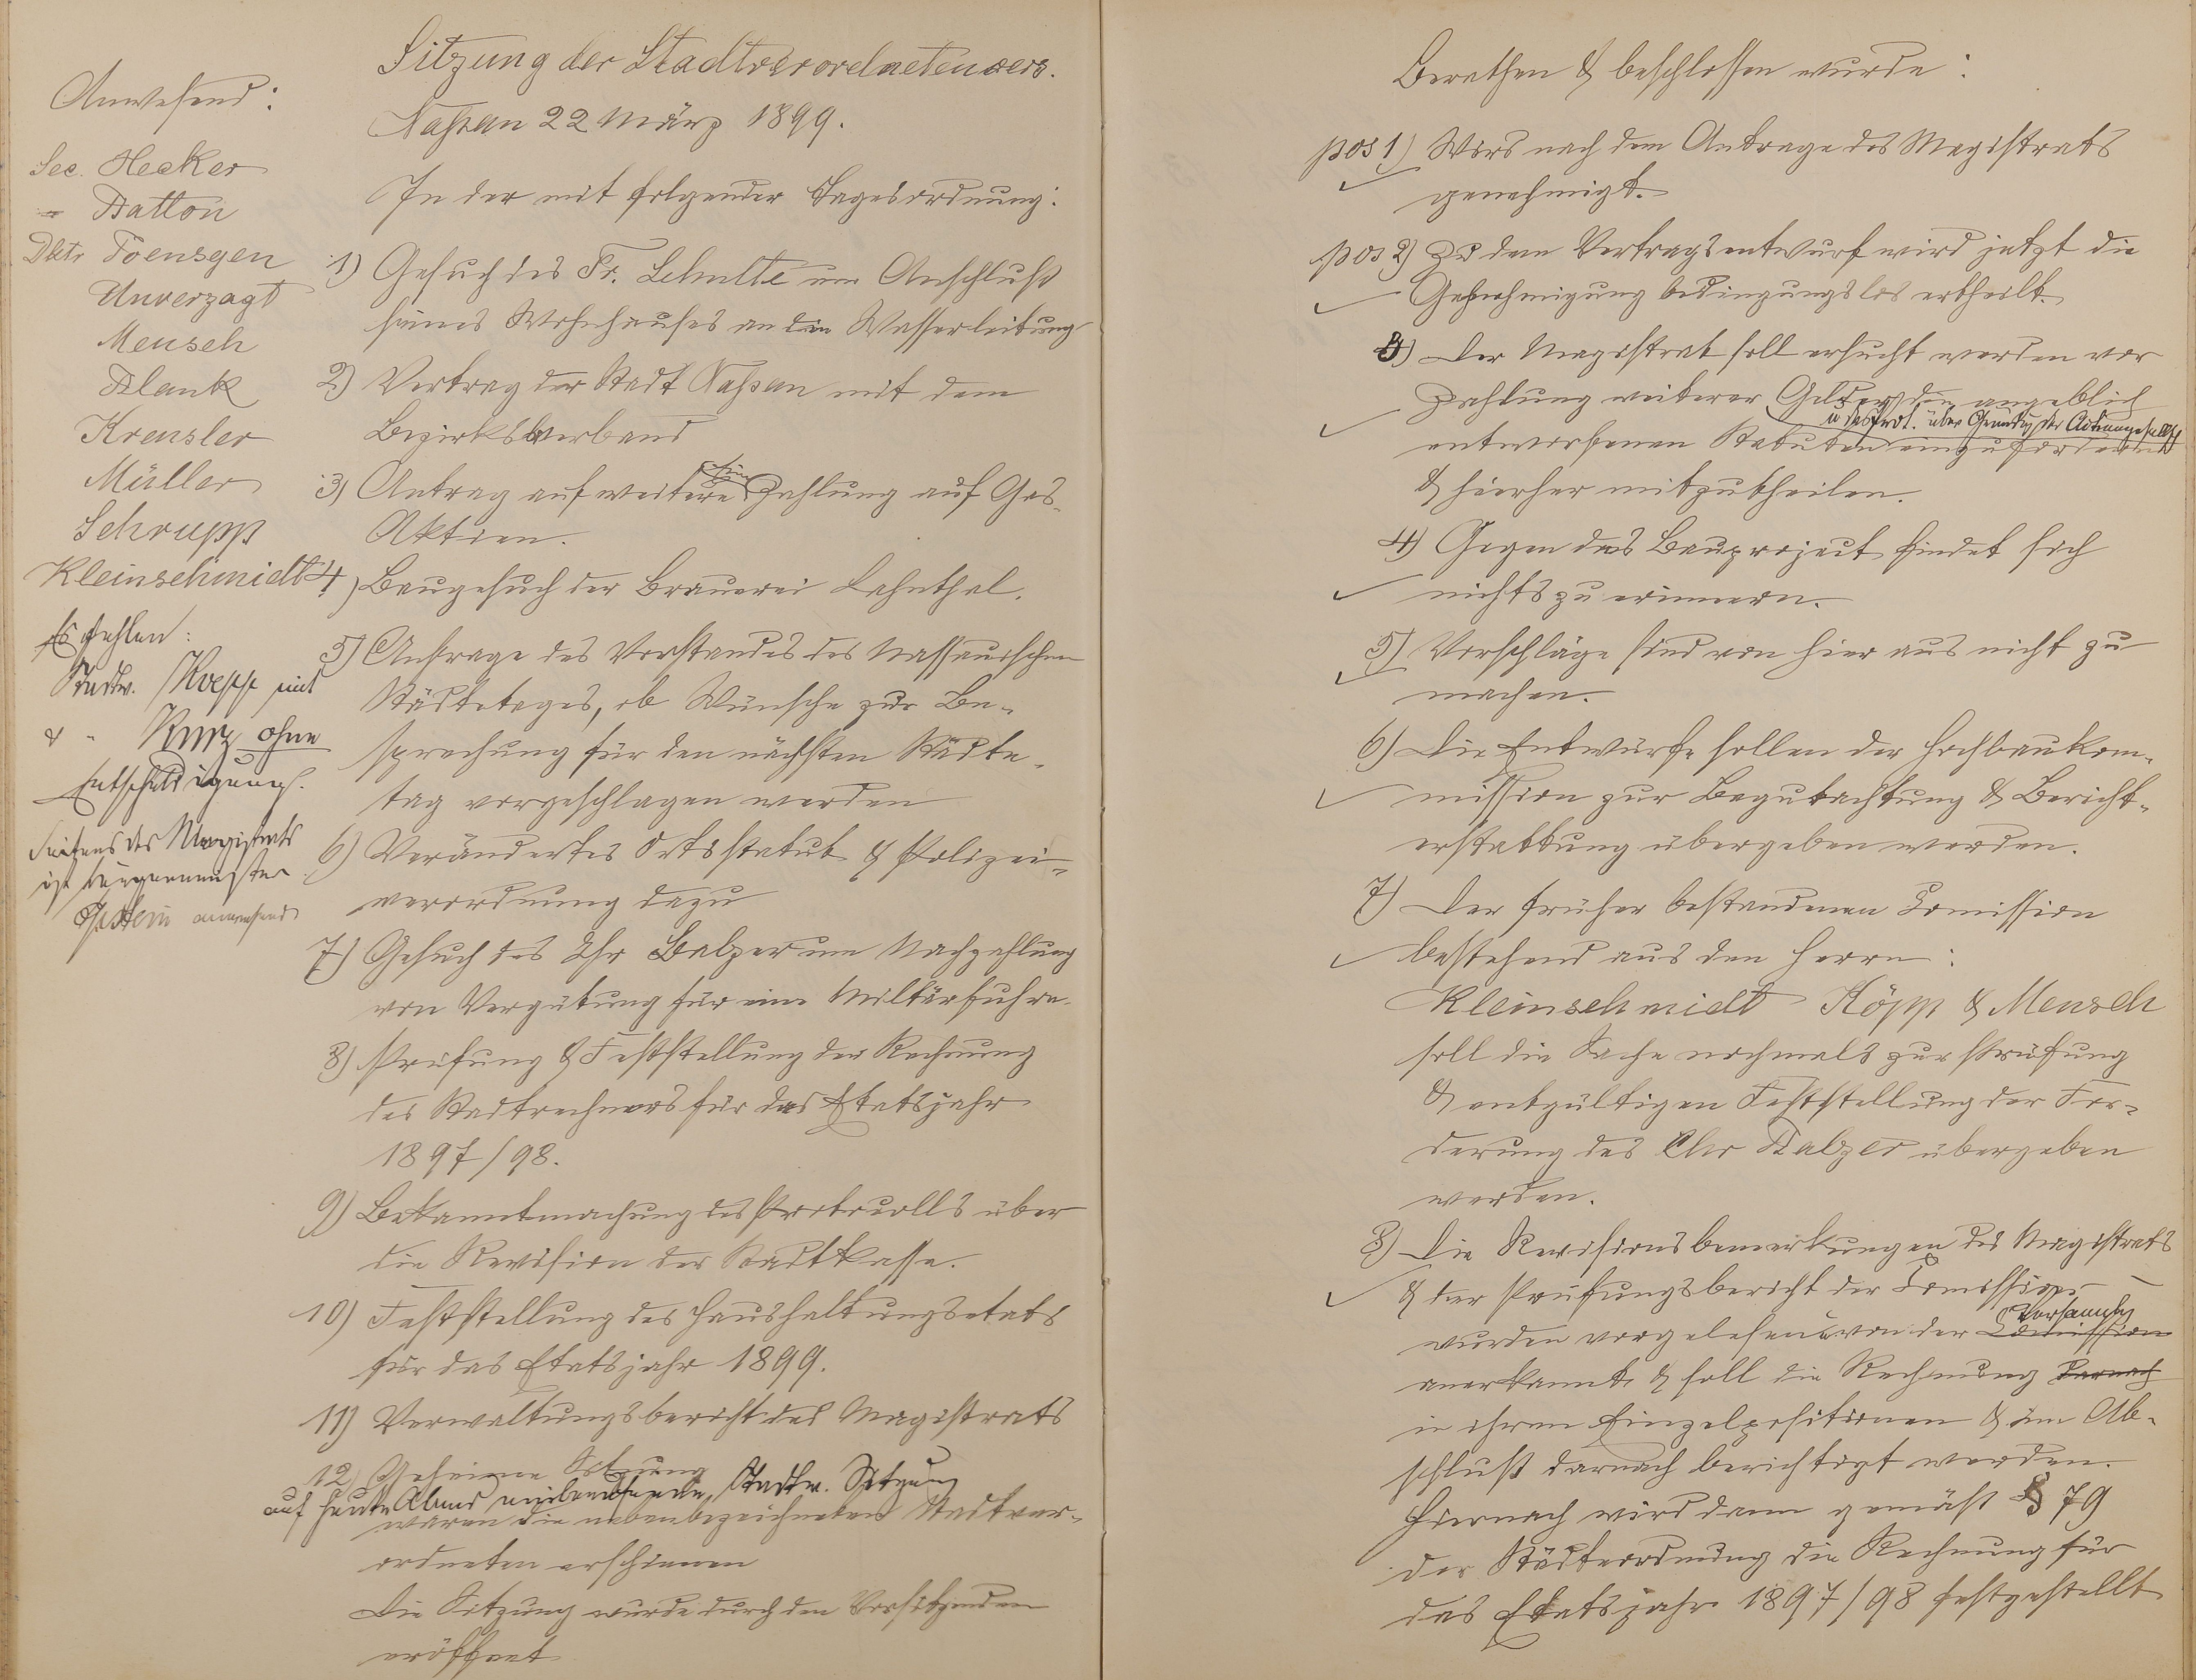 Anwesend:
Sec. Hecker
" Balton
Dktr Toensgen
Unverzagt
Mensch
Blank
Krensler
Müller
Schrupp
Kleinschmidt
Es fehlen:
Stadtv. Koepp mit
& " Kurz ohne
Entschuldigung.
Seitens des Magistrats
ist Bürgermeister
anwesend
Sitzung der Stadtverordnetenvers.
Nassau 22 März 1899.
In der mit folgender Tagesordnung:
1) Gesuch des Fr. Schulte um Anschluß
seines Wohnhauses an die Wasserleitung
2) Vertrag der Stadt Nassau mit dem
Bezirksverband
3) Antrag auf weitere Zahlung auf Gas-
Aktien.
4) Baugesuch der Brauerei Lahnthal.
5) Anfrage des Vorstandes des Nassauischen
Städtetages, ob Wünsche zur Be-
sprechung für den nächsten Städte-
tag vorgeschlagen werden
6) Verändertes Ortsstatut & Polizei-
verordnung dazu
7) Gesuch des Chr Balzer um Nachzahlung
von Vergütung für eine Militärfuhre
8) Prüfung & Feststellung der Rechnung
des Stadtrechners für das Etatsjahr
1897/98.
9) Bekanntmachung des Protocolls über
die Revision der Stadtkasse.
10) Feststellung des Haushaltungsetats
für das Etatsjahr 1899.
11) Verwaltungsbericht des Magistrats
12) Geheime Sitzung
auf heute Abend anberaumten Stadtv. Sitzung
waren die nebenbezeichneten Stadtver-
ordneten erschienen
Die Sitzung wurde durch den Vorsitzenden
eröffnet
Berathen & beschlossen wurde:
pos 1) Wird nach dem Antrage des Magistrats
genehmigt.
pos 2) Zu dem Vertragsentwurf wird jetzt die
Genehmigung bedingungslos ertheilt.
3) Der Magistrat soll ersucht werden vor
Zahlung weiterer Gelder die angeblich
u das Prot. über Gründg der Actiengesellsch
entworfenen Statuten einzufordern
& hierher mitzutheilen.
4) Gegen das Bauproject findet sich
nichts zu erinnern.
5) Vorschläge sind von hier aus nicht zu
machen.
6) Die Entwürfe sollen der Hochbaukom-
mission zur Begutachtung & Bericht-
erstattung übergeben werden.
7) Der früher bestandenen Comission
bestehend aus den Herrn:
Kleinschmidt Köpp & Mensch
soll die Sache nochmals zur Prüfung
& entgültigen Feststellung der For-
derung des Chr Balzer übergeben
werden.
8) Die Revisionsbemerkungen des Magistrats
& der Prüfungsbericht der Comission
Versammlg
wurden vorgelesen u von der Comission
anerkannt & soll die Rechnung darnach
in ihren Einzelpositionen & im Ab-
schluß darnach berichtigt werden.
Hiernach wird dann gemäß § 79
der Städteordnung die Rechnung für
das Etatsjahr 1897/98 festgestellt